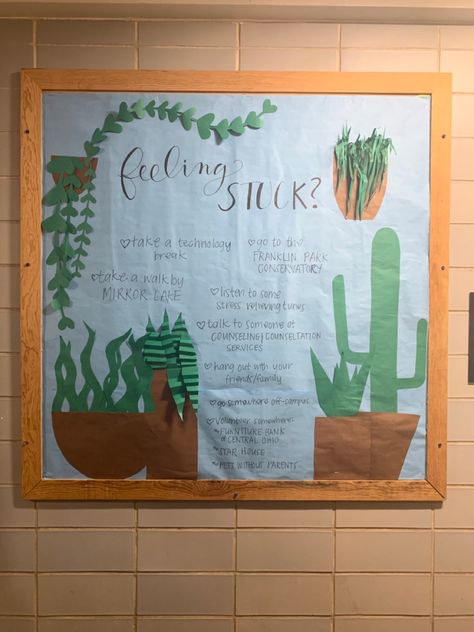 feeling
STUCK?
♡take a technology
break
♡go to the
FRANKLIN PARK
CONSERVATORY
♡take a walk by
MIRROR LAKE
♡listen to some
stress relieving tunes
♡talk to someone at
COUNSELING/CONSULTATION
SERVICES
♡hang out with your
friends/family
♡go somewhere off-campus
♡volunteer somewhere:
~FURNITURE BANK
OF CENTRAL OHIO
~STAR HOUSE
~PETS WITHOUT PARENTS